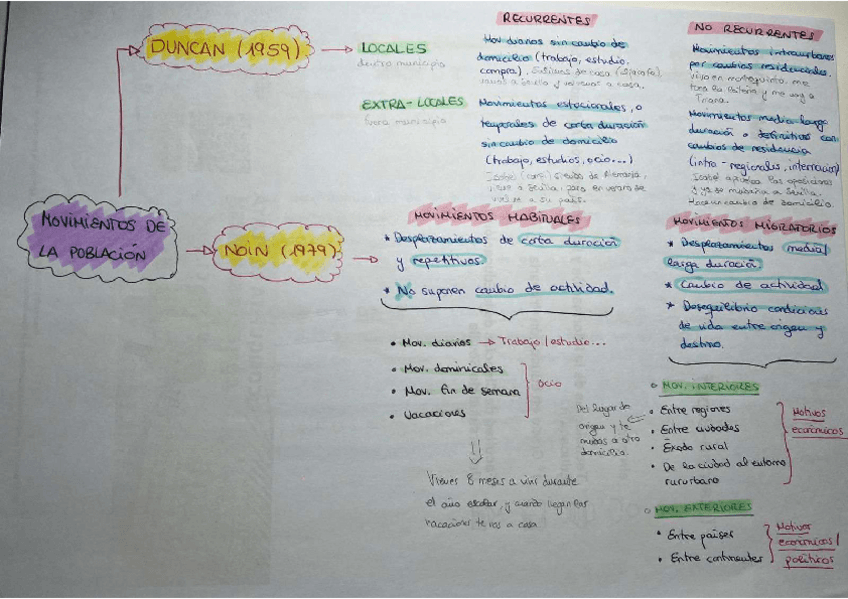 MOVIMIENTOS DE
LA POBLACIÓN
DUNCAN (1959)
LOCALES
dentro municipio
EXTRA-LOCALES
fuera municipio
RECURRENTES
Mov diarios sin cambio de
domicilio (trabajo, estudio,
compra), de casa
a Sevilla y a casa.
Movimientos estacionales, o
temporales de corta duración
sin cambio de domicilio
(trabajo, estudios, ocio...)
Isabel de Alemania,
a Sevilla, pero en verano se
vuelve a su país.
NO RECURRENTES
Movimientos intraurbanos
por cambios residenciales,
vivo en me
toca la lotería y me voy a
Triana.
Movimientos media larga
duración o definitivos con
cambios de residencia
(intra-regionales, internacion)
Isabel las oposiciones
y se a Sevilla.
Hace un cambio de domicilio.
NOIN (1979)
MOVIMIENTOS HABITUALES
* Desplazamientos de corta duración
y repetitivos.
* No suponen cambio de actividad.
• Mov. diarios → Trabajo/estudio...
• Mov. dominicales
• Mov. fin de semana
• Vacaciones
ocio
Vienes 8 meses a vivir durante
el año escolar, y cuando llegan las
vacaciones te vas a casa
MOVIMIENTOS MIGRATORIOS
* Desplazamientos media/
larga duración
* Cambio de actividad
* Desequilibrio condiciones
de vida entre origen y
destino.
MOV. INTERIORES
• Entre regiones
• Entre ciudades
• Éxodo rural
• De la ciudad al entorno
rururbano
Motivos
económicos
Del lugar de
origen y te
mudas a otro
domicilio.
MOV. EXTERIORES
• Entre países
• Entre continentes
Motivos
económicos/
políticos